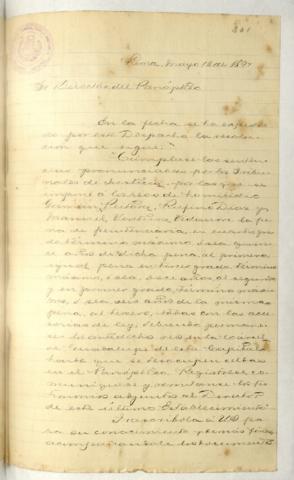 301
Lima, Mayo 18 de 1897
Sr Director del Panóptico
En la fecha se ha expedi-
do por este Despacho la resolu-
ción que sigue:
"Cúmplase las senten-
cias pronunciadas por los Tribu-
nales de Justicia, por las que se
impone á los reos de homicidio
y
Manuel la pe-
na de penitenciaria, en cuarto gra-
do término máximo, ó sea quin-
ce años de dicha pena, al primero
igual pena en tercer grado, término
máximo, ó sea, doce años al segundo
y en primer grado, término máxi-
mo, ó sea seis años de la misma
pena, al tercero, todas con las acce-
sorias de ley; debiendo permane-
cer los antedichos reos en la carcel
de Guadalupe de esta Capital
hasta que se desocupen celdas
en el Panóptico. Regístrese, co-
muníquese y remítanse los tes-
timonios adjuntos al Director
de este último Establecimiento"
Trascríbola á US pa-
ra su conocimiento y demás fines
acompañandole los documentos